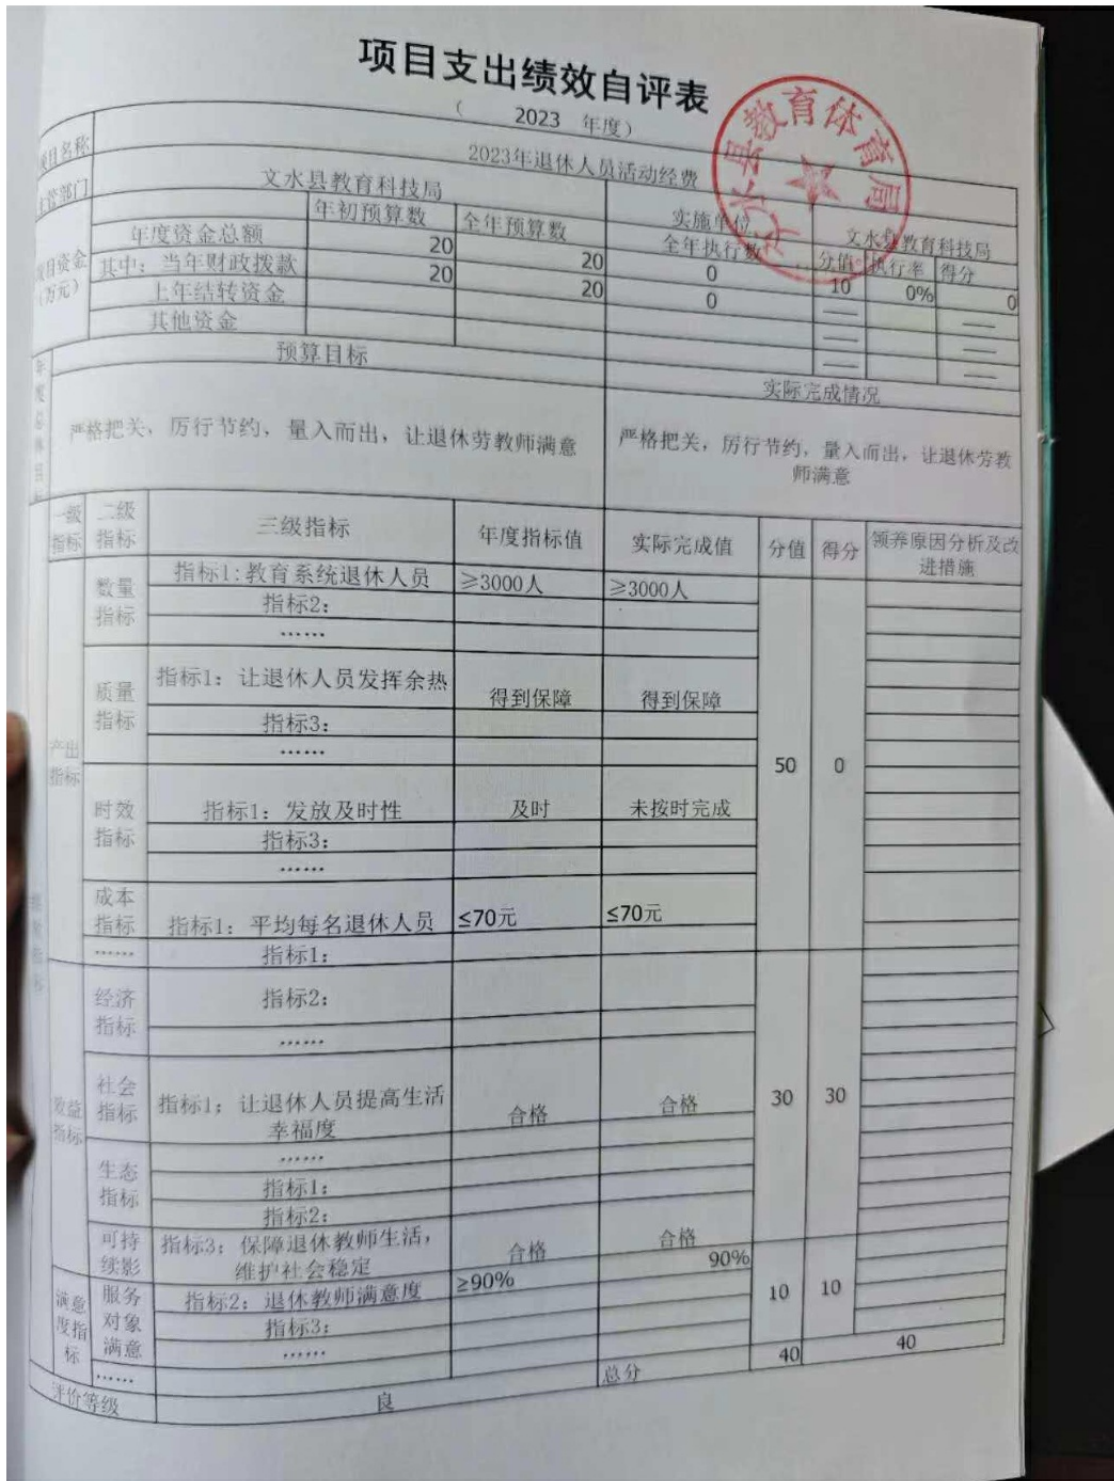 项目支出绩效自评表
( 2023 年度)
项目名称 2023年退休人员活动经费
主管部门 文水县教育科技局 实施单位 文水县教育科技局
项目资金(万元) 年初预算数 全年预算数 全年执行数 分值 执行率 得分
年度资金总额 20 20 0 10 0% 0
其中:当年财政拨款 20 20 0 —— ——
上年结转资金 —— ——
其他资金 —— ——
年度总体目标 预算目标 实际完成情况
严格把关,厉行节约,量入而出,让退休劳教师满意 严格把关,厉行节约,量入而出,让退休劳教师满意
一级指标 二级指标 三级指标 年度指标值 实际完成值 分值 得分 领养原因分析及改进措施
产出指标 数量指标 指标1:教育系统退休人员 ≥3000人 ≥3000人 50 0
指标2:
……
质量指标 指标1:让退休人员发挥余热 得到保障 得到保障
指标3:
……
时效指标 指标1:发放及时性 及时 未按时完成
指标3:
……
成本指标 指标1:平均每名退休人员 ≤70元 ≤70元
…… 指标1:
效益指标 经济指标 指标2: 30 30
……
社会指标 指标1;让退休人员提高生活幸福度 合格 合格
……
生态指标 指标1:
指标2:
可持续影 指标3:保障退休教师生活,维护社会稳定 合格 合格
满意度指标 服务对象满意 指标2:退休教师满意度 ≥90% 90% 10 10
指标3:
……
…… 总分 40 40
评价等级 良
文水县教育体育局